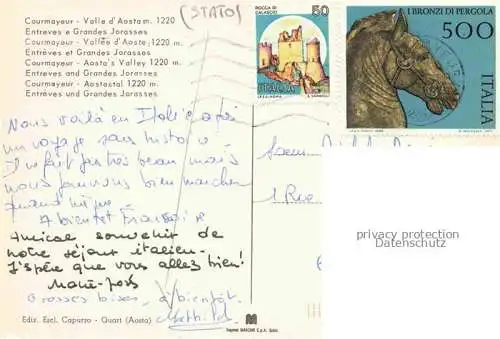 Courmayeur - Valle d'Aosta m. 1220
Entrèves e Grandes Jorasses
Courmayeur - Vallée d'Aoste 1220 m.
Entrèves et Grandes Jorasses
Courmayeur - Aosta's Valley 1220 m.
Entrèves and Grandes Jorasses
Courmayeur - Aostastal 1220 m.
Entrèves und Grandes Jorasses
(STATO)
ROCCA DI
CALASCIO
50
ITALIA
I BRONZI DI PERGOLA
500
ITALIA
Nous voilà en Italie après
un voyage sans histoire
Il ne fait pas très beau mais
nous pouvons bien marcher
quand même.
A bientôt Françoise
Amical souvenir de
notre séjour italien.
J'spère que vous allez bien!
Grosses bises, à bientôt.
Mathilde
1 Rue
privacy protection
Datenschutz
Ediz. Escl. Capurro - Quart (Aosta)